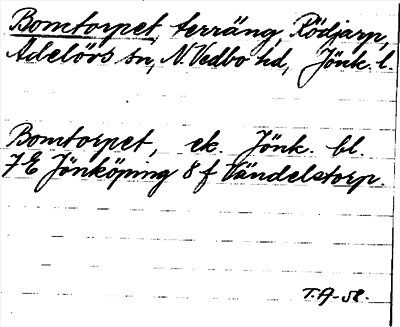 Bomtorpet, terräng, Rödjarp,
Adelövs sn, N. Vedbo hd, Jönk. l.
Bomtorpet, ek. Jönk. bl.
7E Jönköping 8 f Vändelstorp.
T.A-58.